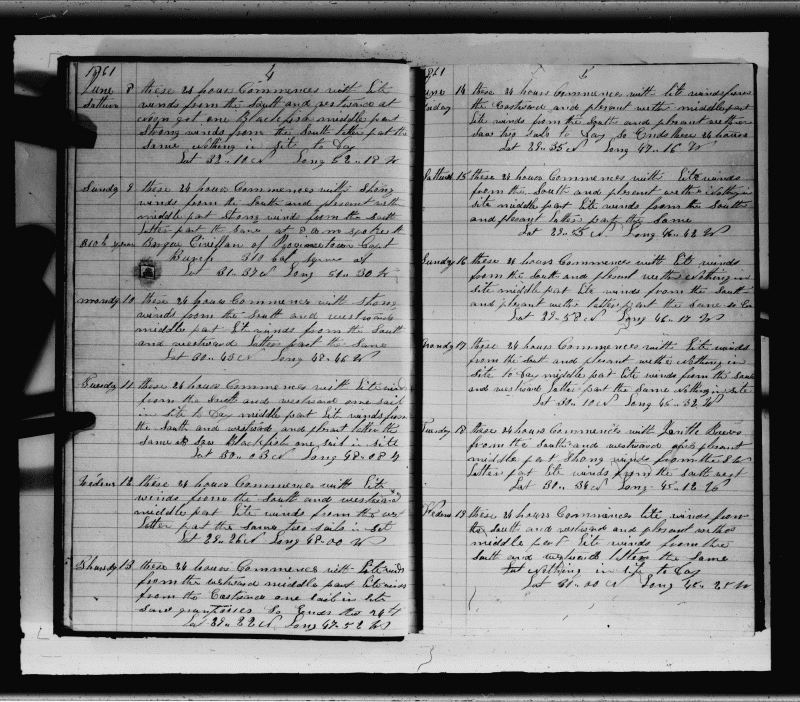 1861 4
June 8 these 24 hours Commences with Lite
winds from the South and westward at
noon got one Blackfish middle part
Strong winds from the South latter part the
Same nothing in Site to Day
Lat 32 - 10 N Long 52 - 18 W
Sundy 9 these 24 hours Commences with Strong
winds from the South and plesent with
middle part Strong winds from the South
latter part the Same at
of Provincetown Capt
310 bbl
Lat 31 - 37 N Long 51 - 30 W
mondy 10 these 24 hours Commences with Strong
winds from the South and westward
middle part Lite winds from the South
and westward latter part the Same
Lat 30 - 43 N Long 48 - 46 W
Tuesdy 11 these 24 hours Commences with Lite winds
from the South and westward one sail
in Site to Day middle part Lite winds from
the South and westward and plesent latter the
Same Saw Blackfish one Sail in Site
Lat 30 - 03 N Long 48 - 08 W
Wedens 12 these 24 hours Commences with Lite
winds from the South and westward
middle part Lite winds from the west
latter part the Same two Sails in Set
Lat 29 - 26 N Long 48 - 00 W
Thursdy 13 these 24 hours Commences with Lite winds
from the westward middle part Lite winds
from the Eastward one Sail in Site
Saw grampuses So Ends the 24 h
Lat 29 - 22 N Long 47 - 52 W
1861 5
June 14 these 24 hours Commences with Lite winds from
Friday the Eastward and plesant wethr middle part
Lite winds from the South and plesant wether
Saw two Sails to Day So Ends these 24 hours
Lat 29 - 35 N Long 47 - 16 W
15 these 24 hours Commences with Lite winds
from the South and plesent wethr Nothing in
Site middle part Lite winds from the South
and plesant latter part the Same
Lat 29 - 55 N Long 46 - 42 W
Sundy 16 these 24 hours Commences with Lite winds
from the South and plesent wether Nothing in
Site middle part Lite winds from the South
and plesant wether latter part the Same So En
Lat 29 - 58 N Long 46 - 17 W
Mondy 17 these 24 hours Commences with Lite winds
from the South and plesant wethr Nothing in
Site to Day middle part Lite winds from the South
and westward latter part the Same Nothing in Site
Lat 30 - 10 N Long 46 - 32 W
Tuesdy 18 these 24 hours Commences with Jentle Breeze
from the South and westward and plesant
middle part Strong winds from the SW
latter part Lite winds from the South west
Lat 30 - 34 N Long 45 - 12 W
Wedens 19 these 24 hours Commences Lite winds from
the South and westward and plesant wether
middle part Lite winds from the
South and westward latter the Same
Nothing in to Day
Lat 31 - 00 N Long 45 - 25 W